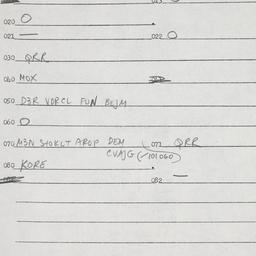 020 O
021 — 022 O
030 QRR
040 MOX
050 D3R VORCL FUN BKJM
060 O
070 M3N SIOKLT AROP DEM 071 QRR
CVAJG (101060)
080 KORE
082 —